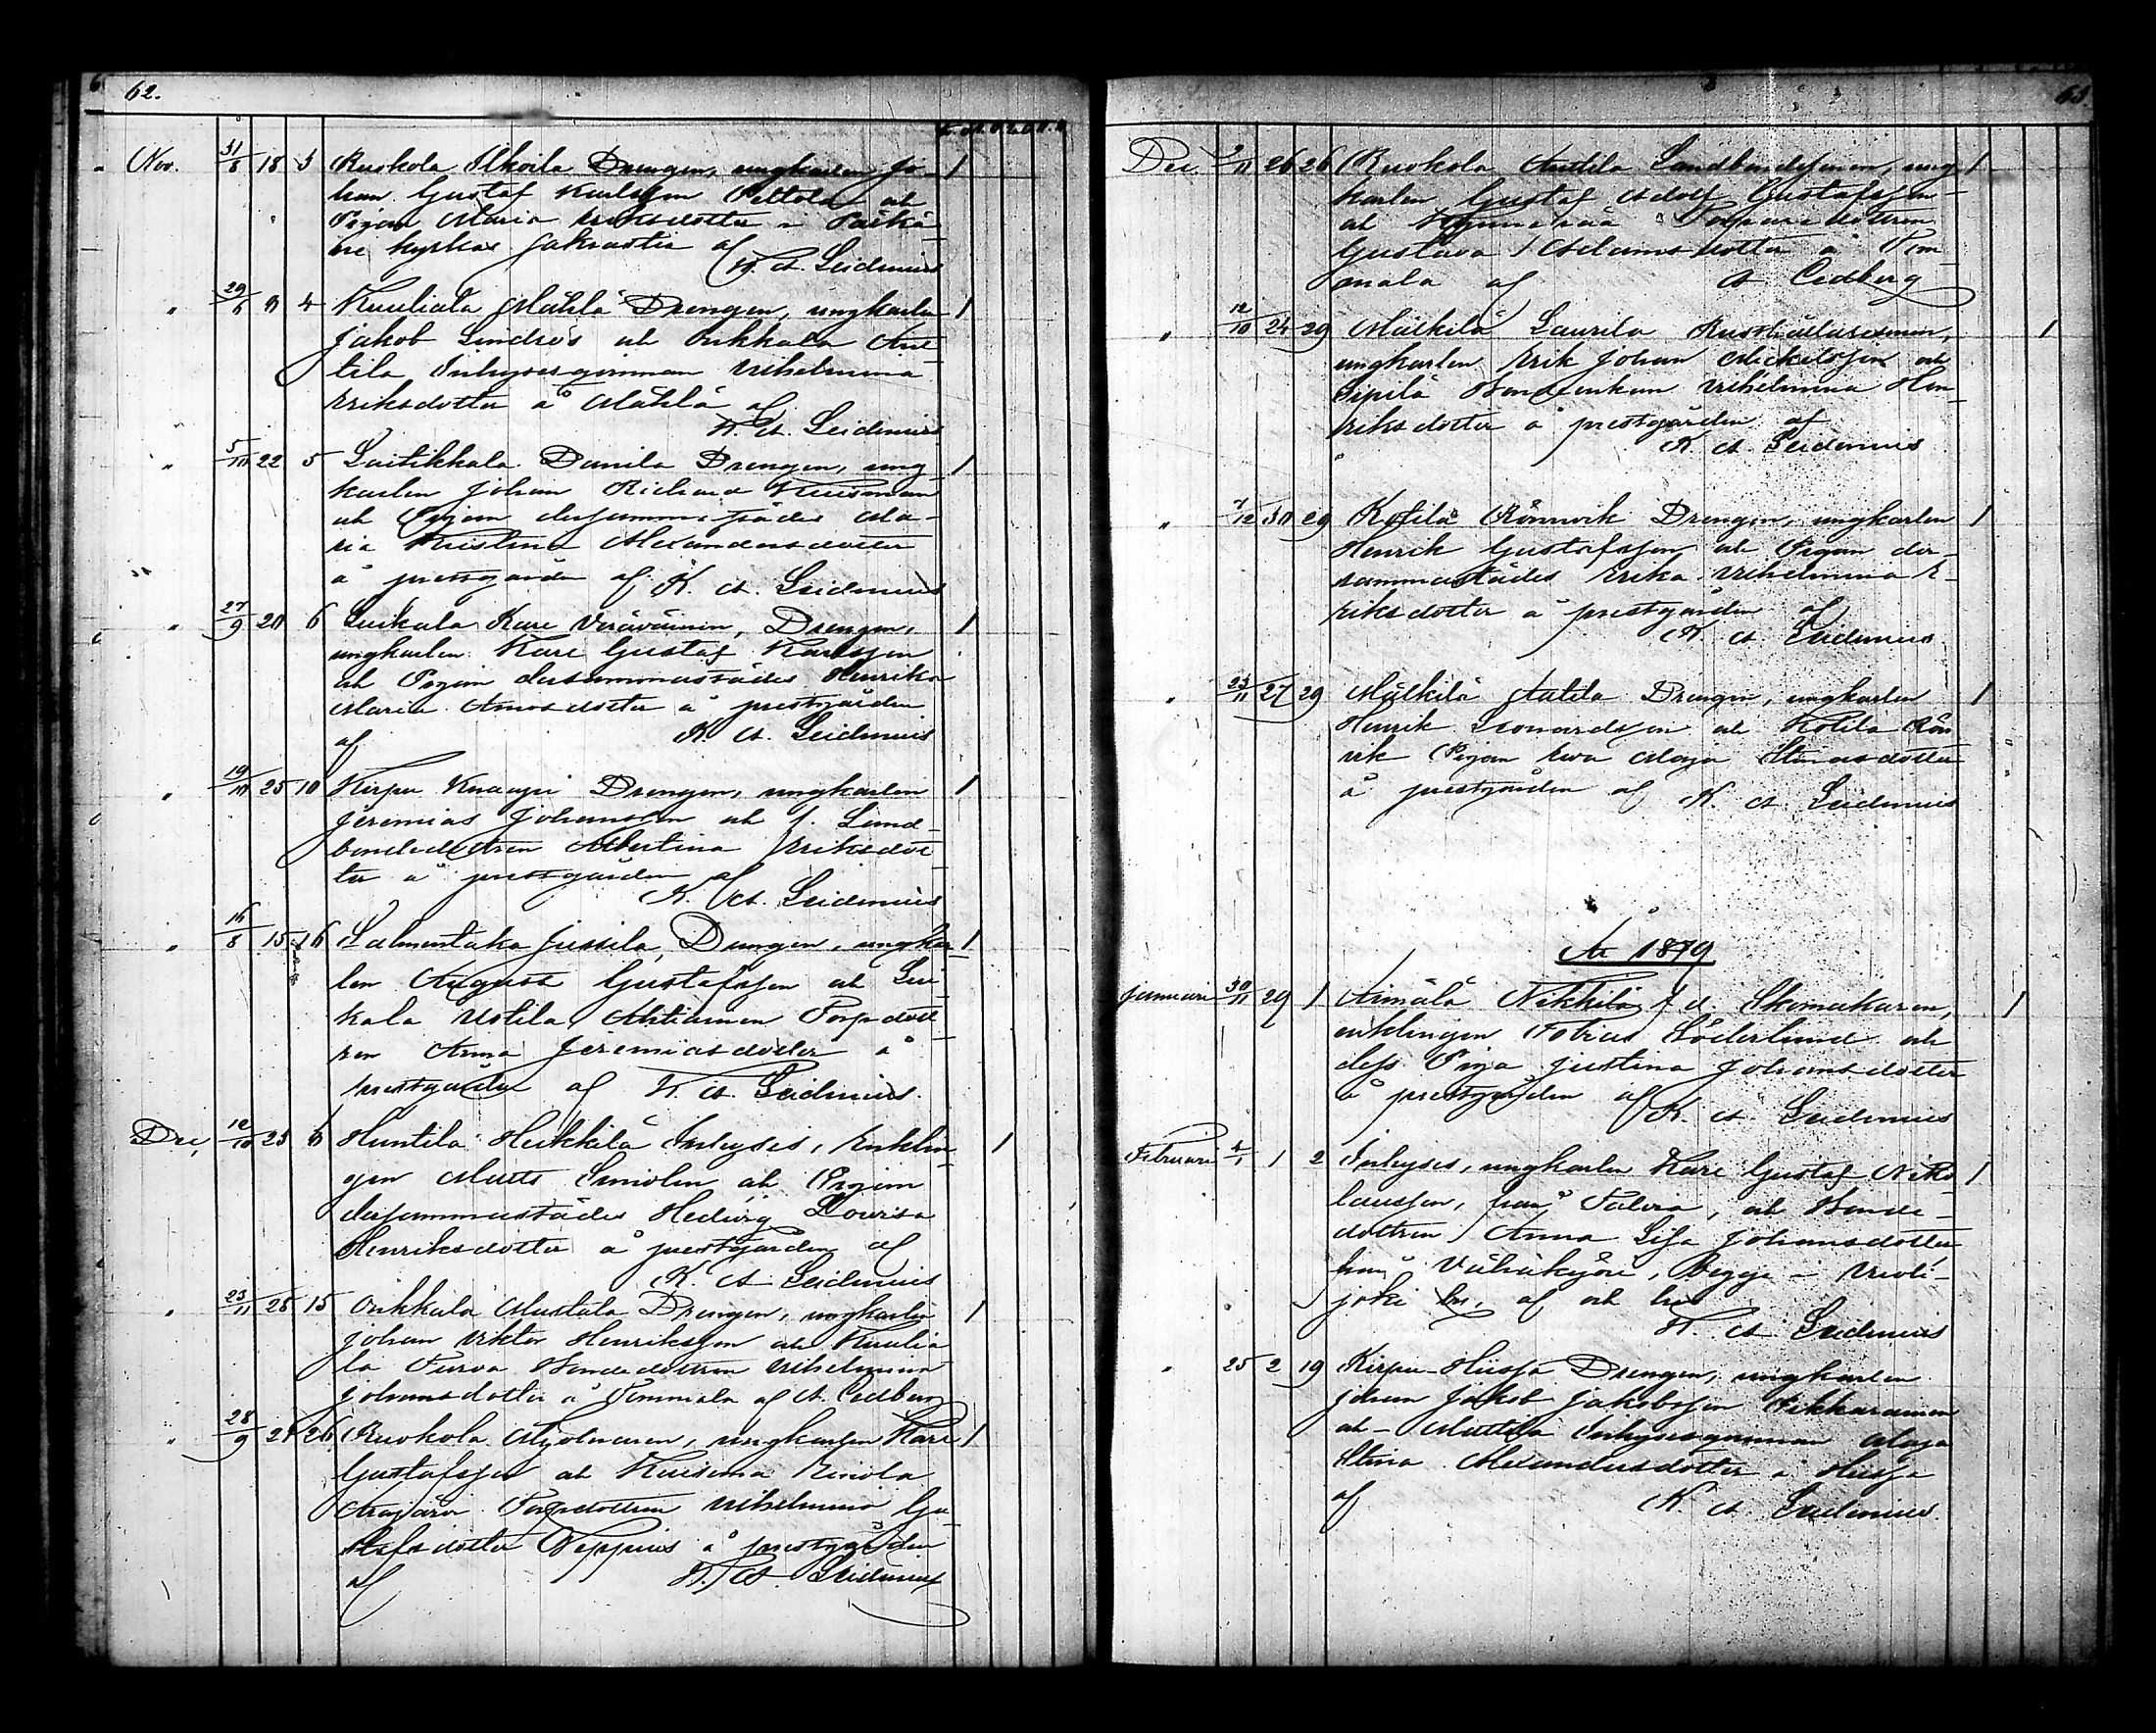 62.
Nov. 31/8 18 3 Ruokola Ilkoila Drengen, ungkarlen Jo- 1
han Gustaf Karlsson Peltola och
Pigan Maria Eriksdotter i Pälkä-
ne kyrkas sakrastia af
K. A. Leidenius
" 29/6 4 Kuuliala Mähkä Drengen, ungkarlen 1
Jakob Lindros och Onkkala Ant-
tila Inhysesqvinnan Vilhelmina
Eriksdotter å Mähkä af
K. A. Leidenius
" 5/10 22 5 Laitikkala Danila Drengen, ung- 1
karlen Johan Richard Kuisman
och Pigan dersammastädes Ma-
ria Kristina Alexandersdotter
å prestgården af K. A. Leidenius
" 27/9 20 6 Luikala Kare Drengen, 1
ungkarlen Karl Gustaf Karlsson
och Pigan dersammastädes Henrika
Maria Amosdotter å prestgården
af K. A. Leidenius
" 19/10 25 10 Kirpu Knaapi Drengen, ungkarlen 1
Jeremias Johansson och f. Land-
bondedottren Albertina Eriksdot-
ter å prestgården af
K. A. Leidenius
" 16/8 15 16 Salmentaka Jussila, Drengen, ungkar- 1
len August Gustafsson och Lui-
kala Uotila Ahtiainen Torpdott-
ren Anna Jeremiasdotter å
prestgården af K. A. Leidenius.
Dec, 12/10 23 Huntila Heikkilä Inhyses, Enklin- 1
gen Matts Smolin och Pigan
dersammastädes Hedvig Lovisa
Henriksdotter å prestgården af
K. A. Leidenius
" 23/11 25 15 Onkkala Mattila Drengen, ungkarlen 1
Johan Viktor Henriksson och Kuulia-
la Turva Bondedottren Vilhelmina
Johansdotter å Tommola af A. Cedberg
" 28/9 21 26 Ruokola ungkarlen Karl 1
Gustafsson och Kuisema Einola
Torpdottren Vilhelmina Gu-
stafsdotter Neppius å prestgården
af K. A. Leidenius
63.
Dec. 26 26 Ruokola Anttila Landbondesonen, ung- 1
karlen Gustaf Adolf Gustafsson
och Torparedottren
Gustava Adamsdotter å Tom-
mola af A. Cedberg
" 12/10 24 29 Mälkilä Laurila Rusthållaresonen, 1
ungkarlen Erik Johan Mickelsson och
Sipilä Bondeenkan Vilhelmina Hen-
riksdotter å prestgården af
K. A. Leidenius
" 7/12 30 29 Kotila Rönnvik Drengen, ungkarlen 1
Henrik Gustafsson och Pigan der-
sammastädes Erika Vilhelmina E-
riksdotter å prestgården af
K. A. Leidenius
" 23/11 27 29 Mälkilä Anttila Drengen, ungkarlen 1
Henrik Leonardsson och Kotila Rön-
vik Pigan Eva Maja
å prestgården af K. A. Leidenius
År 1879
Januari 30/11 29 1 Aimälä Nikkilä f. d. Skomakaren, 1
enklingen Tobias Söderlund och
dess Piga Justina Johansdotter
å prestgården af K. A. Leidenius
Februari 1 2 Inhyses, ungkarlen Karl Gustaf Niko- 1
lausson, från och Bonde-
dottren Anna Lisa Johansdotter
från Vähäkyrö, begge i
joki af och hos
K. A. Leidenius
" 25 2 19 Kirpu Huisja Drengen, ungkarlen
Johan Jakob Jakobsson Pikkarainen
och Mattila Inhysesqvinnan Maja
Stina Alexandersdotter å Huisja
af K. A. Leidenius.